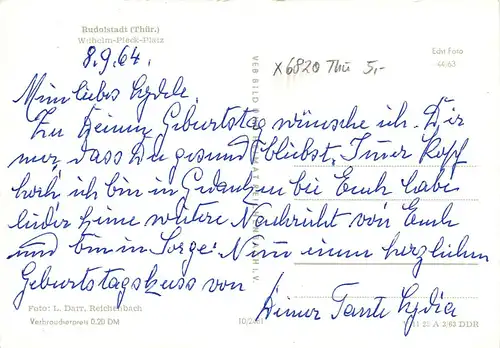 Rudolstadt (Thür.)
Wilhelm-Pieck-Platz
8.9.64.
Echt Foto
44/63
x6820 Thü 5,-
Mein liebes
Zu Deinem Geburtstag wünsche ich Dir
nur, dass Du gesund bleibst. Immer Kopf
hoch ich bin in Gedanken bie Euch habe
leider keine weitere Nachricht von Euch
und bin in Sorge. Nun einen herzlichen
Geburtstagskuss von
Deiner Tante Lydia
VEB BILD UND HEIMAT REICHENBACH I.V.
Foto: L. Darr, Reichenbach
Verbraucherpreis 0,20 DM
A 2/63 DDR